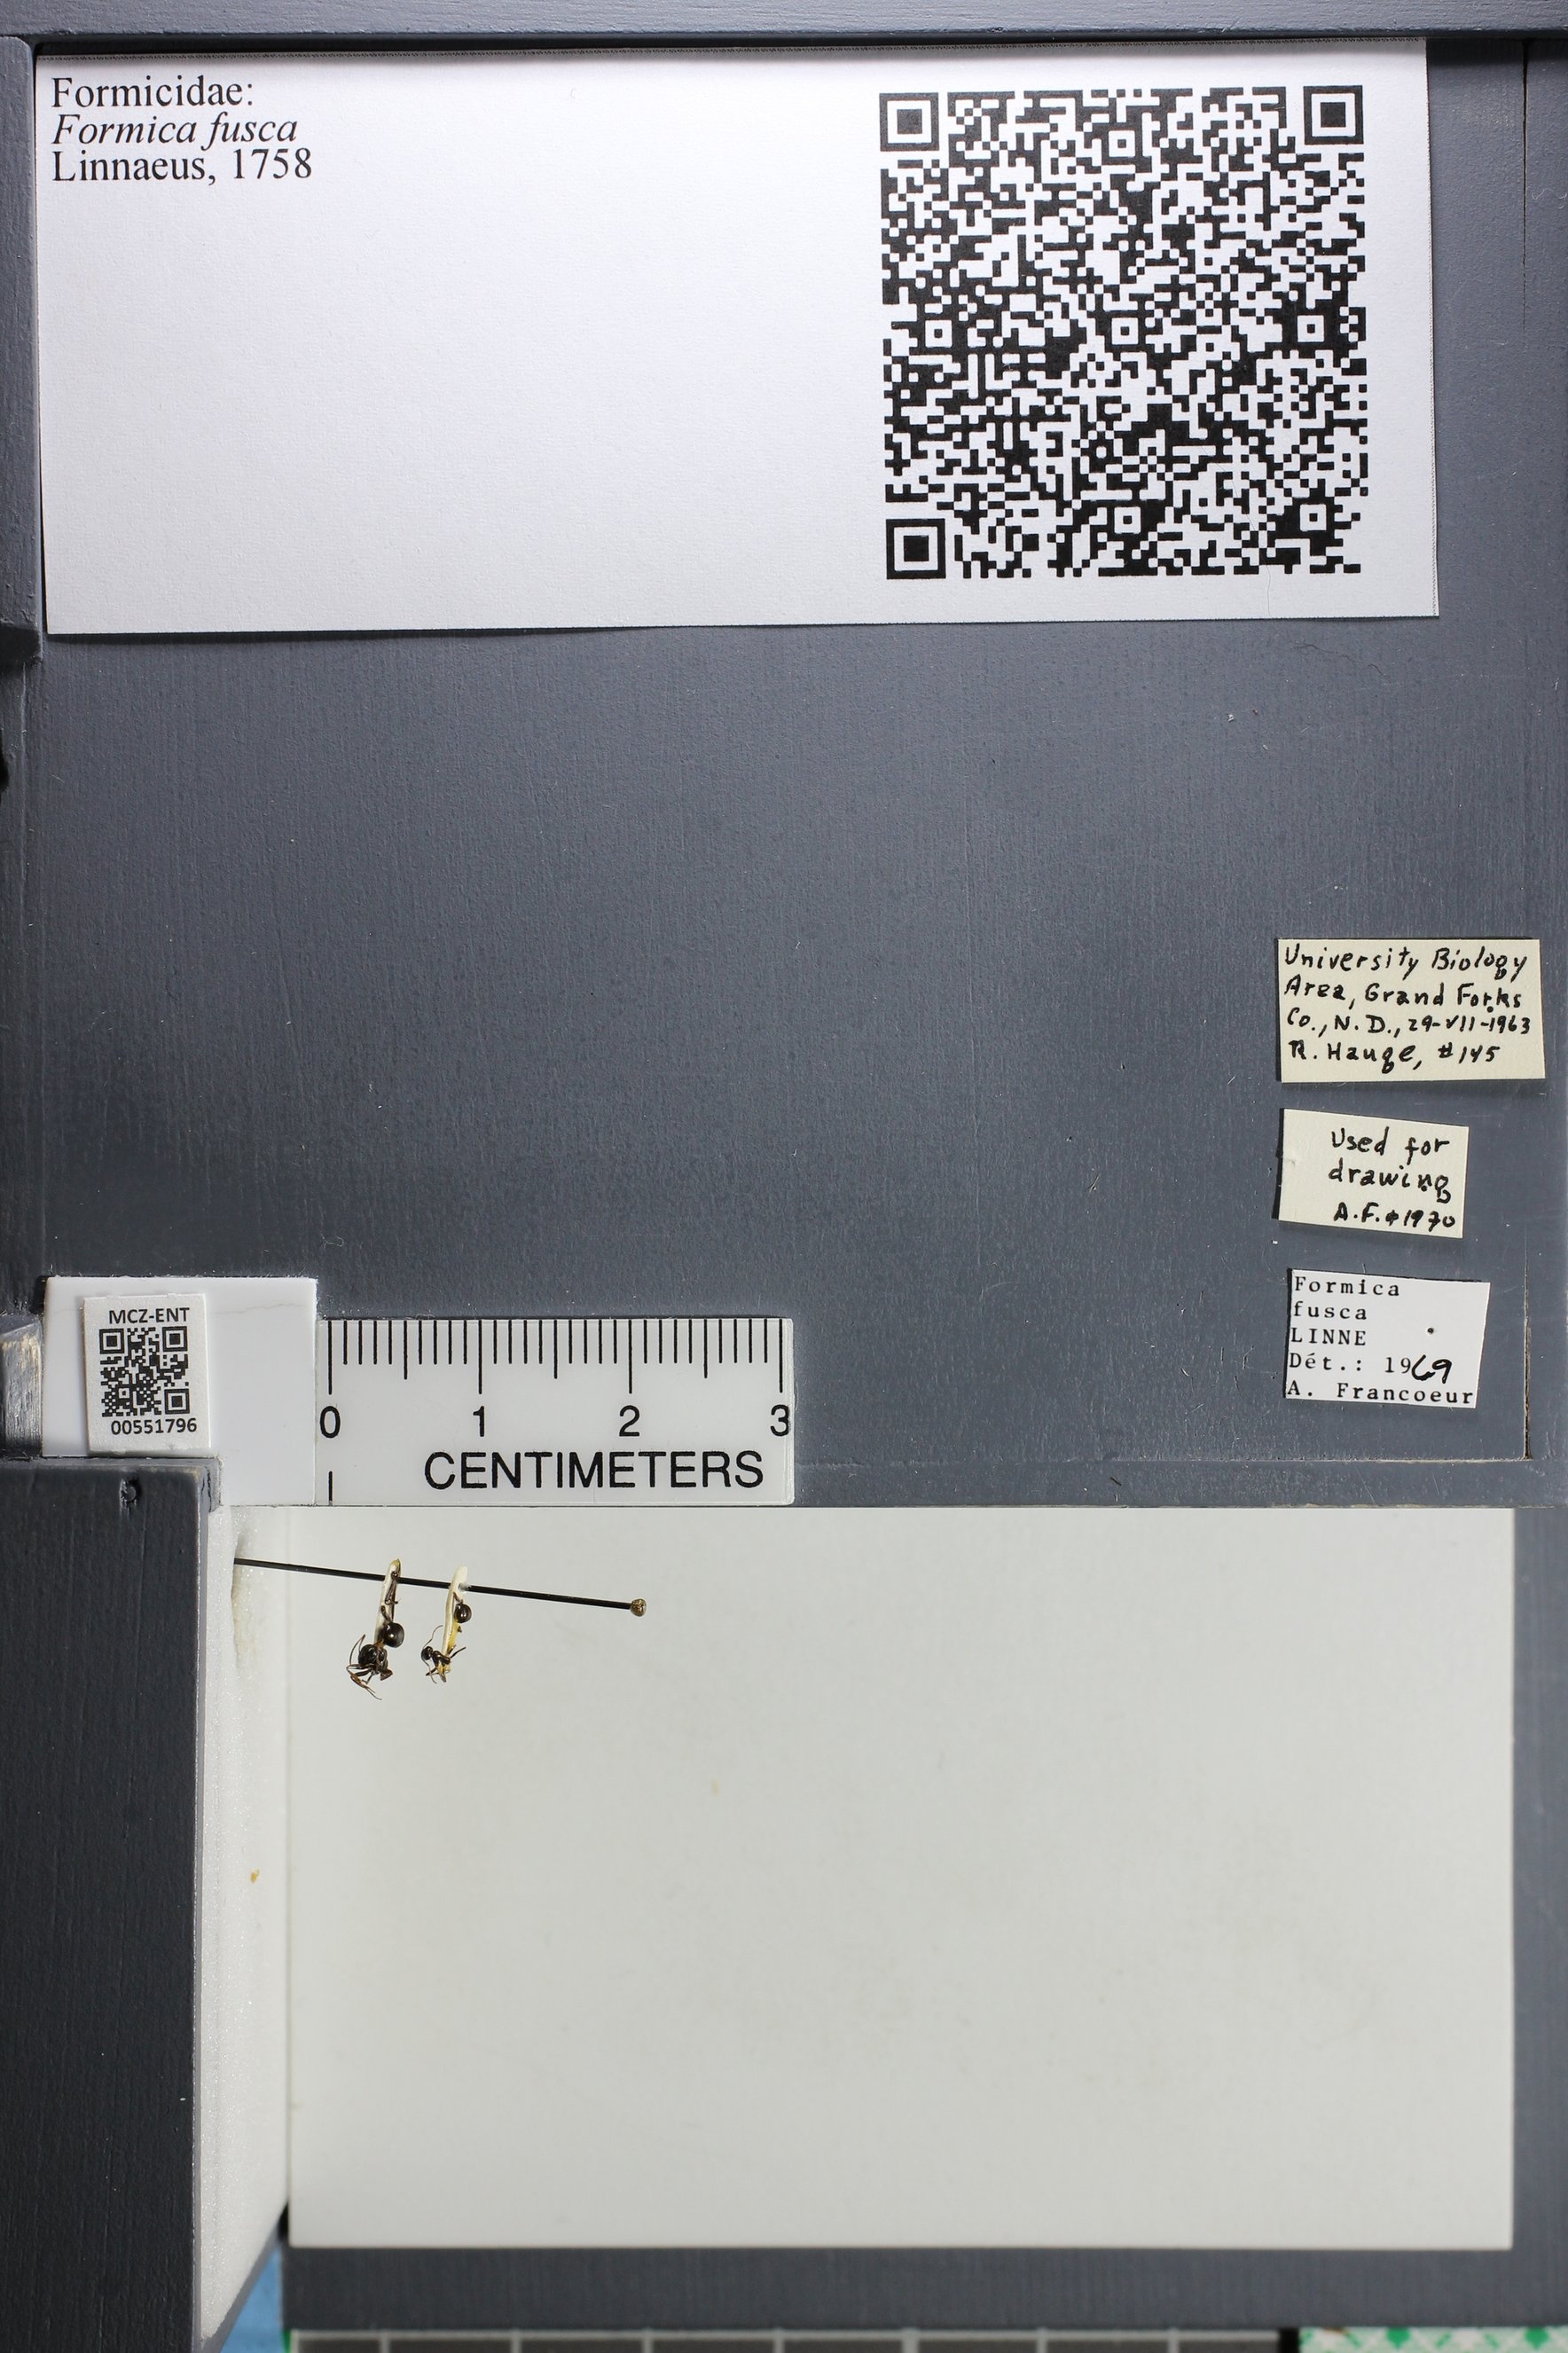 Formicidae:
Formica fusca
Linnaeus, 1758
University Biology
Area, Grand Forks
Co., N.D., 29-VII-1963
R. Hauge, #145
Used for
drawing
A.F. 1970
Formica
fusca
LINNE
Dét.: 1969
A. Francoeur
MCZ-ENT
00551796
0 1 2 3
CENTIMETERS